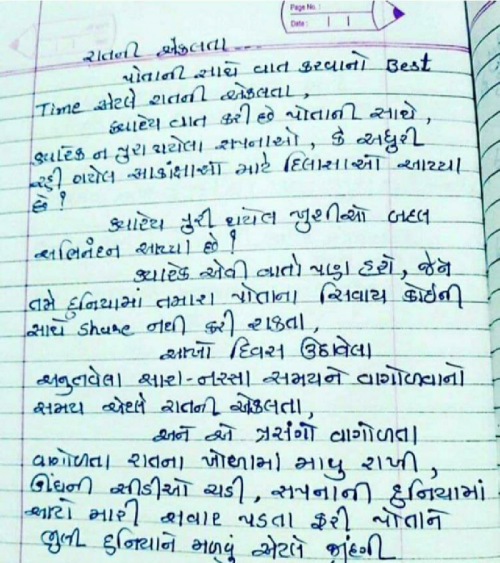 Page No. :
Date :
રાતની એકલતા...
પોતાની સાથે વાત કરવાનો Best
Time એટલે રાતની એકલતા,
ક્યારેય વાત કરી છે પોતાની સાથે,
ક્યારેક ન પુરા થયેલા સપનાઓ, કે અધુરી
રહી ગયેલ આકાંક્ષાઓ માટે દિલાસાઓ આપ્યા
છે?
ક્યારેય પુરી થયેલ ખુશીઓ બદલ
અભિનંદન આપ્યા છે?
ક્યારેક એવી વાતો પણ હશે, જેને
તમે દુનિયામાં તમારા પોતાના સિવાય કોઇની
સાથે share નથી કરી શકતા,
આખો દિવસ ઉઠાવેલા
અનુભવેલા સારા-નરસા સમયને વાગોળવાનો
સમય એટલે રાતની એકલતા,
અને એ પ્રસંગો વાગોળતા
વાગોળતા રાતના ખોળામાં માથુ રાખી,
ઊંઘની સીડીઓ ચડી, સપનાની દુનિયામાં
આંટો મારી સવાર પડતા ફરી પોતાને
ભુલી દુનિયાને મળવું એટલે જીંદગી